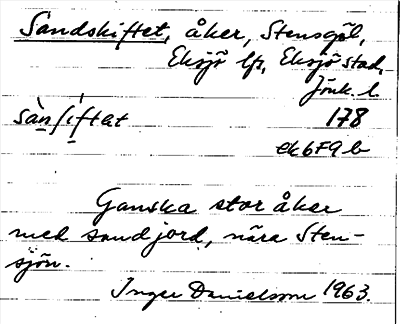 Sandskiftet, åker, Stensgöl,
Eksjö lfs, Eksjö stad,
Jönk. l.
sàn/iftat 178
ek6F9b
Ganska stor åker
med sandjord, nära Sten-
sjön.
Inger Danielsson 1963.